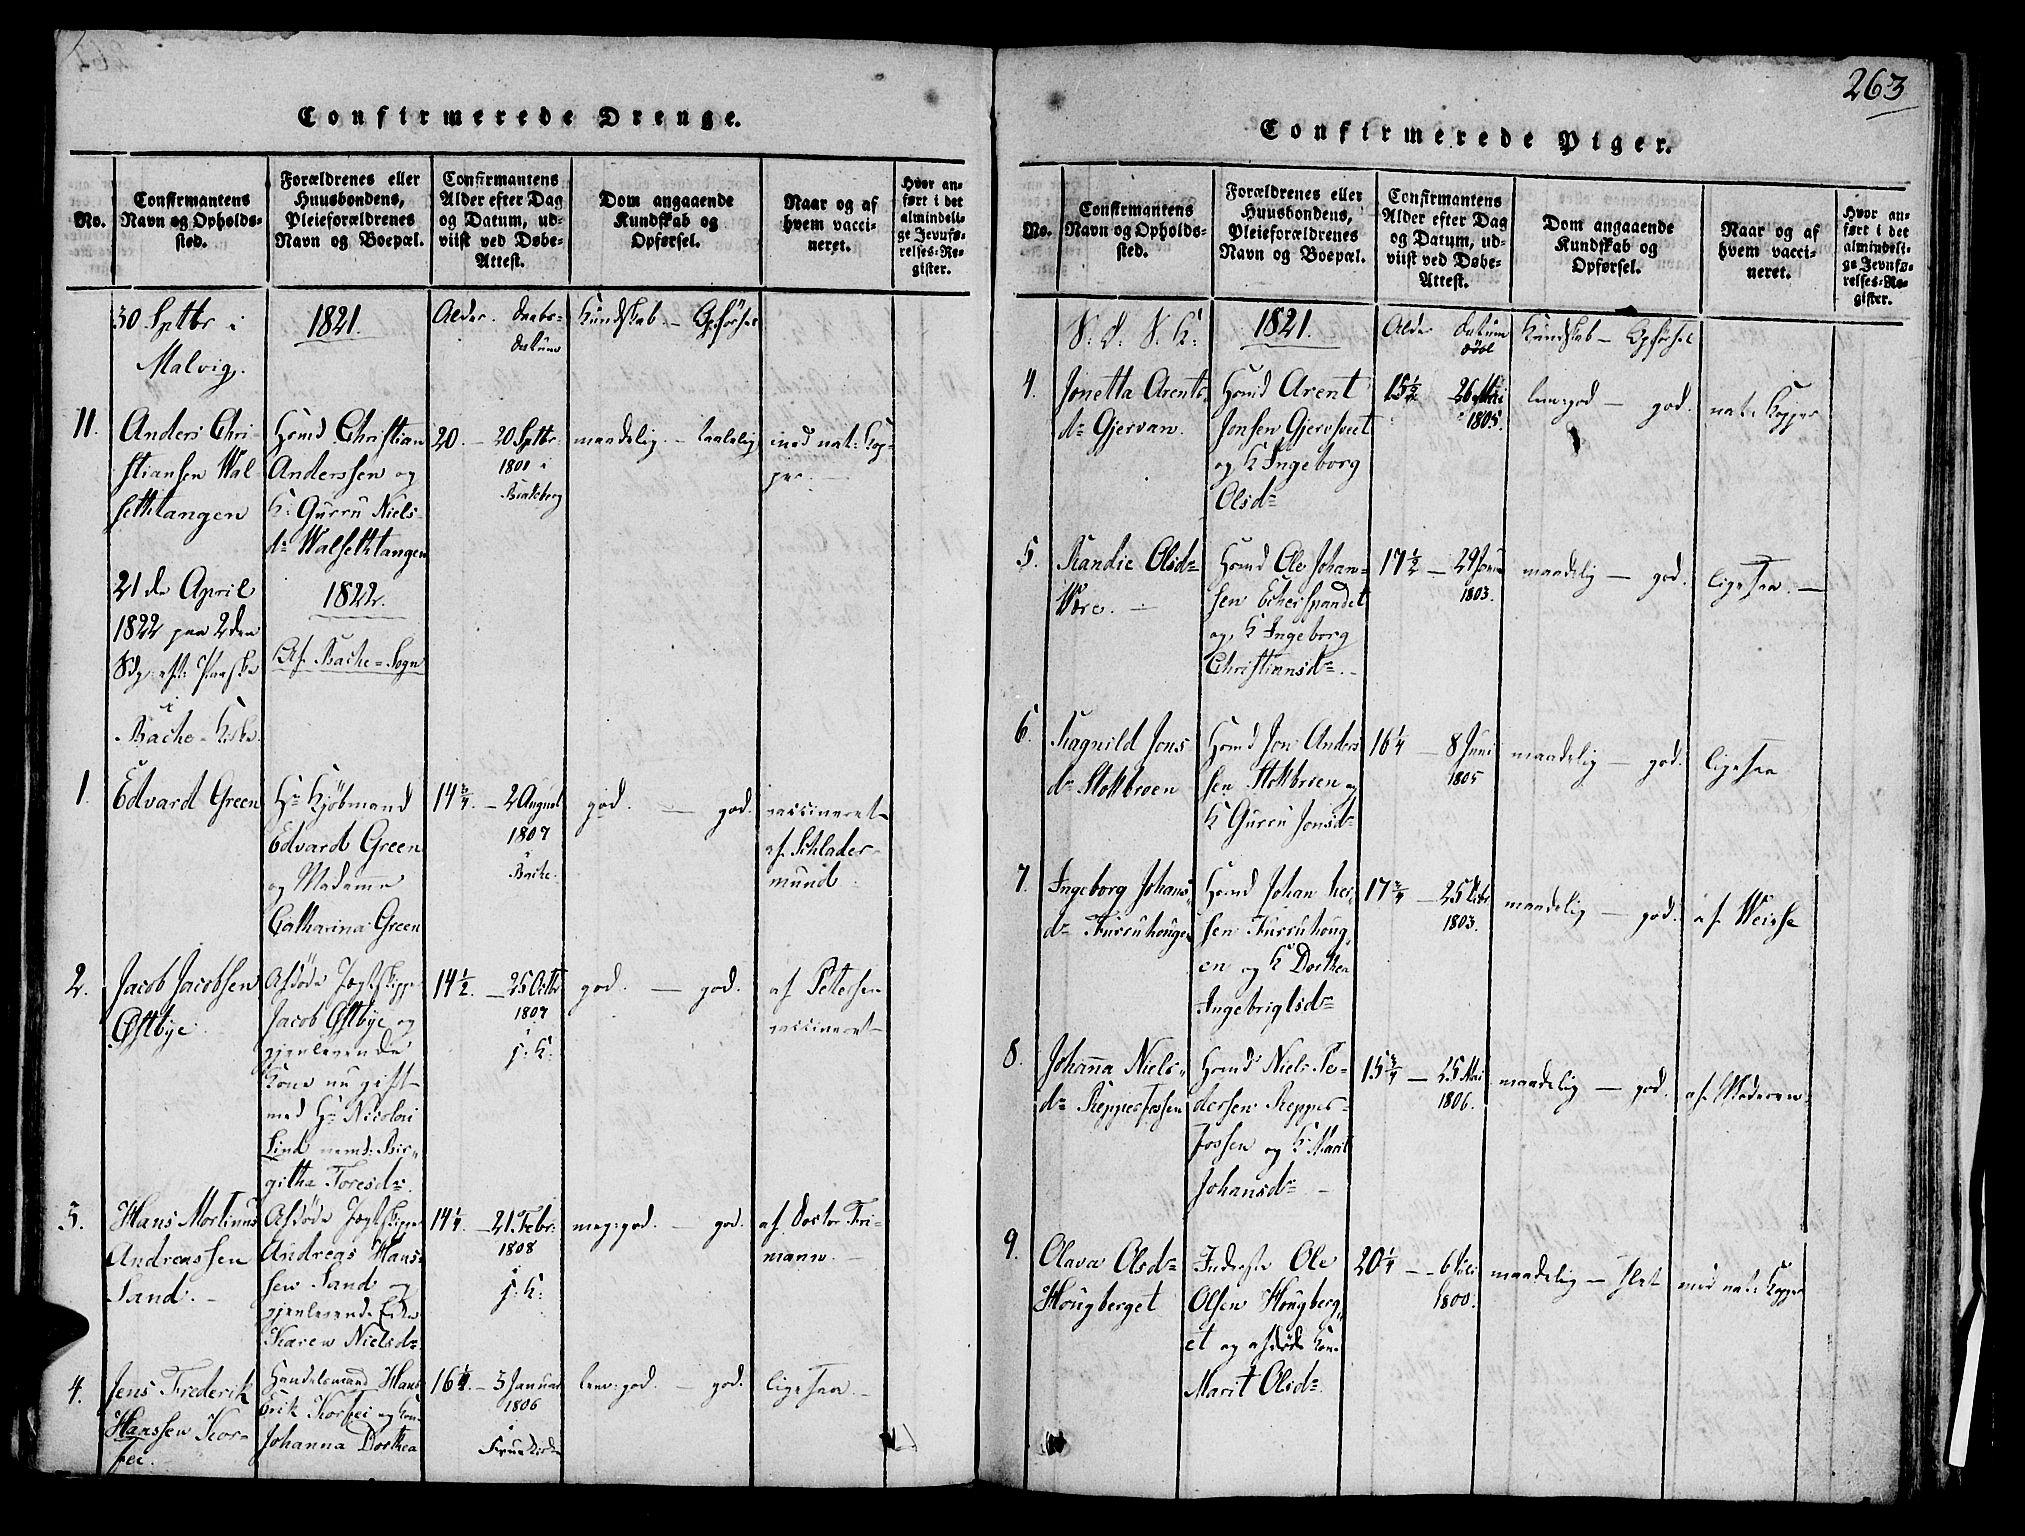 Confirmerede Drenge.
No.
Confirmantens
Navn og Opholds-
sted.
Forældrenes eller
Huusbondens,
Pleieforældrenes
Navn og Boepæl.
Confirmantens
Alder efter Dag
og Datum, ud-
viist ved Døbe-
Attest.
Dom angaaende
Kundskab og
Opførsel.
Naar og af
hvem vacci-
neret.
Hvor an-
ført i det
almindeli-
ge Jevnfø-
relses-Re-
gister.
30 Septbr i
Malvig.
1821.
Alder. Daabs-
datum
Kundskab. – Opførsel
11.
Anders Chri-
stiansen Wal-
sethtangen
Hmd Christian
Anderssen og
K: Gurru Niels-
dr Walsethtangen
20. – 20 Septbr.
1801 i
maadelig. – taalelig
med nat: Kop-
per.
21de April
1822 paa 2den
Sdg. eft: Paaske
i
Bache-Kirke.
1822.
Af Bache-Sogn
1.
Edvard Green
Hr Kjöbmand
Edvard Green
og Madame
Catharina Green
14 3/4. – 2 August
1807
i
Bache.
god. – god.
vaccineret
af Schlader-
mund.
2.
Jacob Jacobsen
Østbye
Afdöde Jægtskipper
Jacob Østbye og
gjenlevende
Kone nu gift
med Hr Nicolai
Lind nemd: Bir-
githa Toresdr.
14 1/2. – 25 Octbr
1807
i: K:
god. – god.
af Petersen
vaccineret
3.
Hans Mortinus
Andreassen
Sand.
Afdöde Jægtskipper
Andreas Hans-
sen Sand og
gjenlevende Enke
Karen Nielsdr
14 1/4. – 21 Febr.
1808
i: K:
meg: god. – god.
af Doctor Fri-
mann.
4.
Jens Frederik
Hanssen Kor-
fei.
Handelsmand Hans
Erik Korfei og Kone
Johanna Dorthea
16 1/4. – 3 Januar
1806
i
lmv: god. – god.
ligesaa.
263
Confirmerede Piger.
No.
Confirmantens
Navn og Opholds-
sted.
Forældrenes eller
Huusbondens,
Pleieforældrenes
Navn og Boepæl.
Confirmantens
Alder efter Dag
og Datum, ud-
viist ved Døbe-
Attest.
Dom angaaende
Kundskab og
Opførsel.
Naar og af
hvem vacci-
neret.
Hvor an-
ført i det
almindeli-
ge Jevnfø-
relses-Re-
gister.
S. D: S. K:
1821.
Alder Datum
Döbt
Kundskab – Opførsel
4.
Jonetta Arents
dr Gjervan.
Hmd Arent
Jonsen Gjervhuet
og K Ingeborg
Olsdr
15 1/2 26 Mai
1805.
lmv: god – god.
nat: Kopper
5.
Randie Olsdr
Være.
Hmd Ole Johan-
sen Echerspandet
og K Ingeborg
Christiansdr.
17 1/2 – 29
1803.
maadelig – god.
ligesaa.
6.
Ragnild Jons
dr Stokbroen
Hmd Jon Anders
sen Stokbroen og
K Gurru Jonsdr
16 1/4 – 8 Juni
1805
maadelig – god.
ligesaa
7.
Ingeborg Johans
dr Furruhougen
Hmd Johan Hei-
sen Furruhoug
en og K Dorthea
Ingebriglsdr
17 3/4 – 25
1803.
maadelig – god.
af Weisse
8.
Johanna Niels
dr Repperfossen
Hmd Niels Pe-
dersen Repper-
fossen og K. Marit
Johansdr.
15 3/4 – 25 Mai
1806.
maadelig – god.
af Moderen
9.
Olava Olsdr
Hougberget
Inderste Ole
Olsen Hougberg
et og afdöde Kone
Marit Olsdr.
20 1/4 – 6 Juli
1800.
maadelig – slet
med nat: Kopper